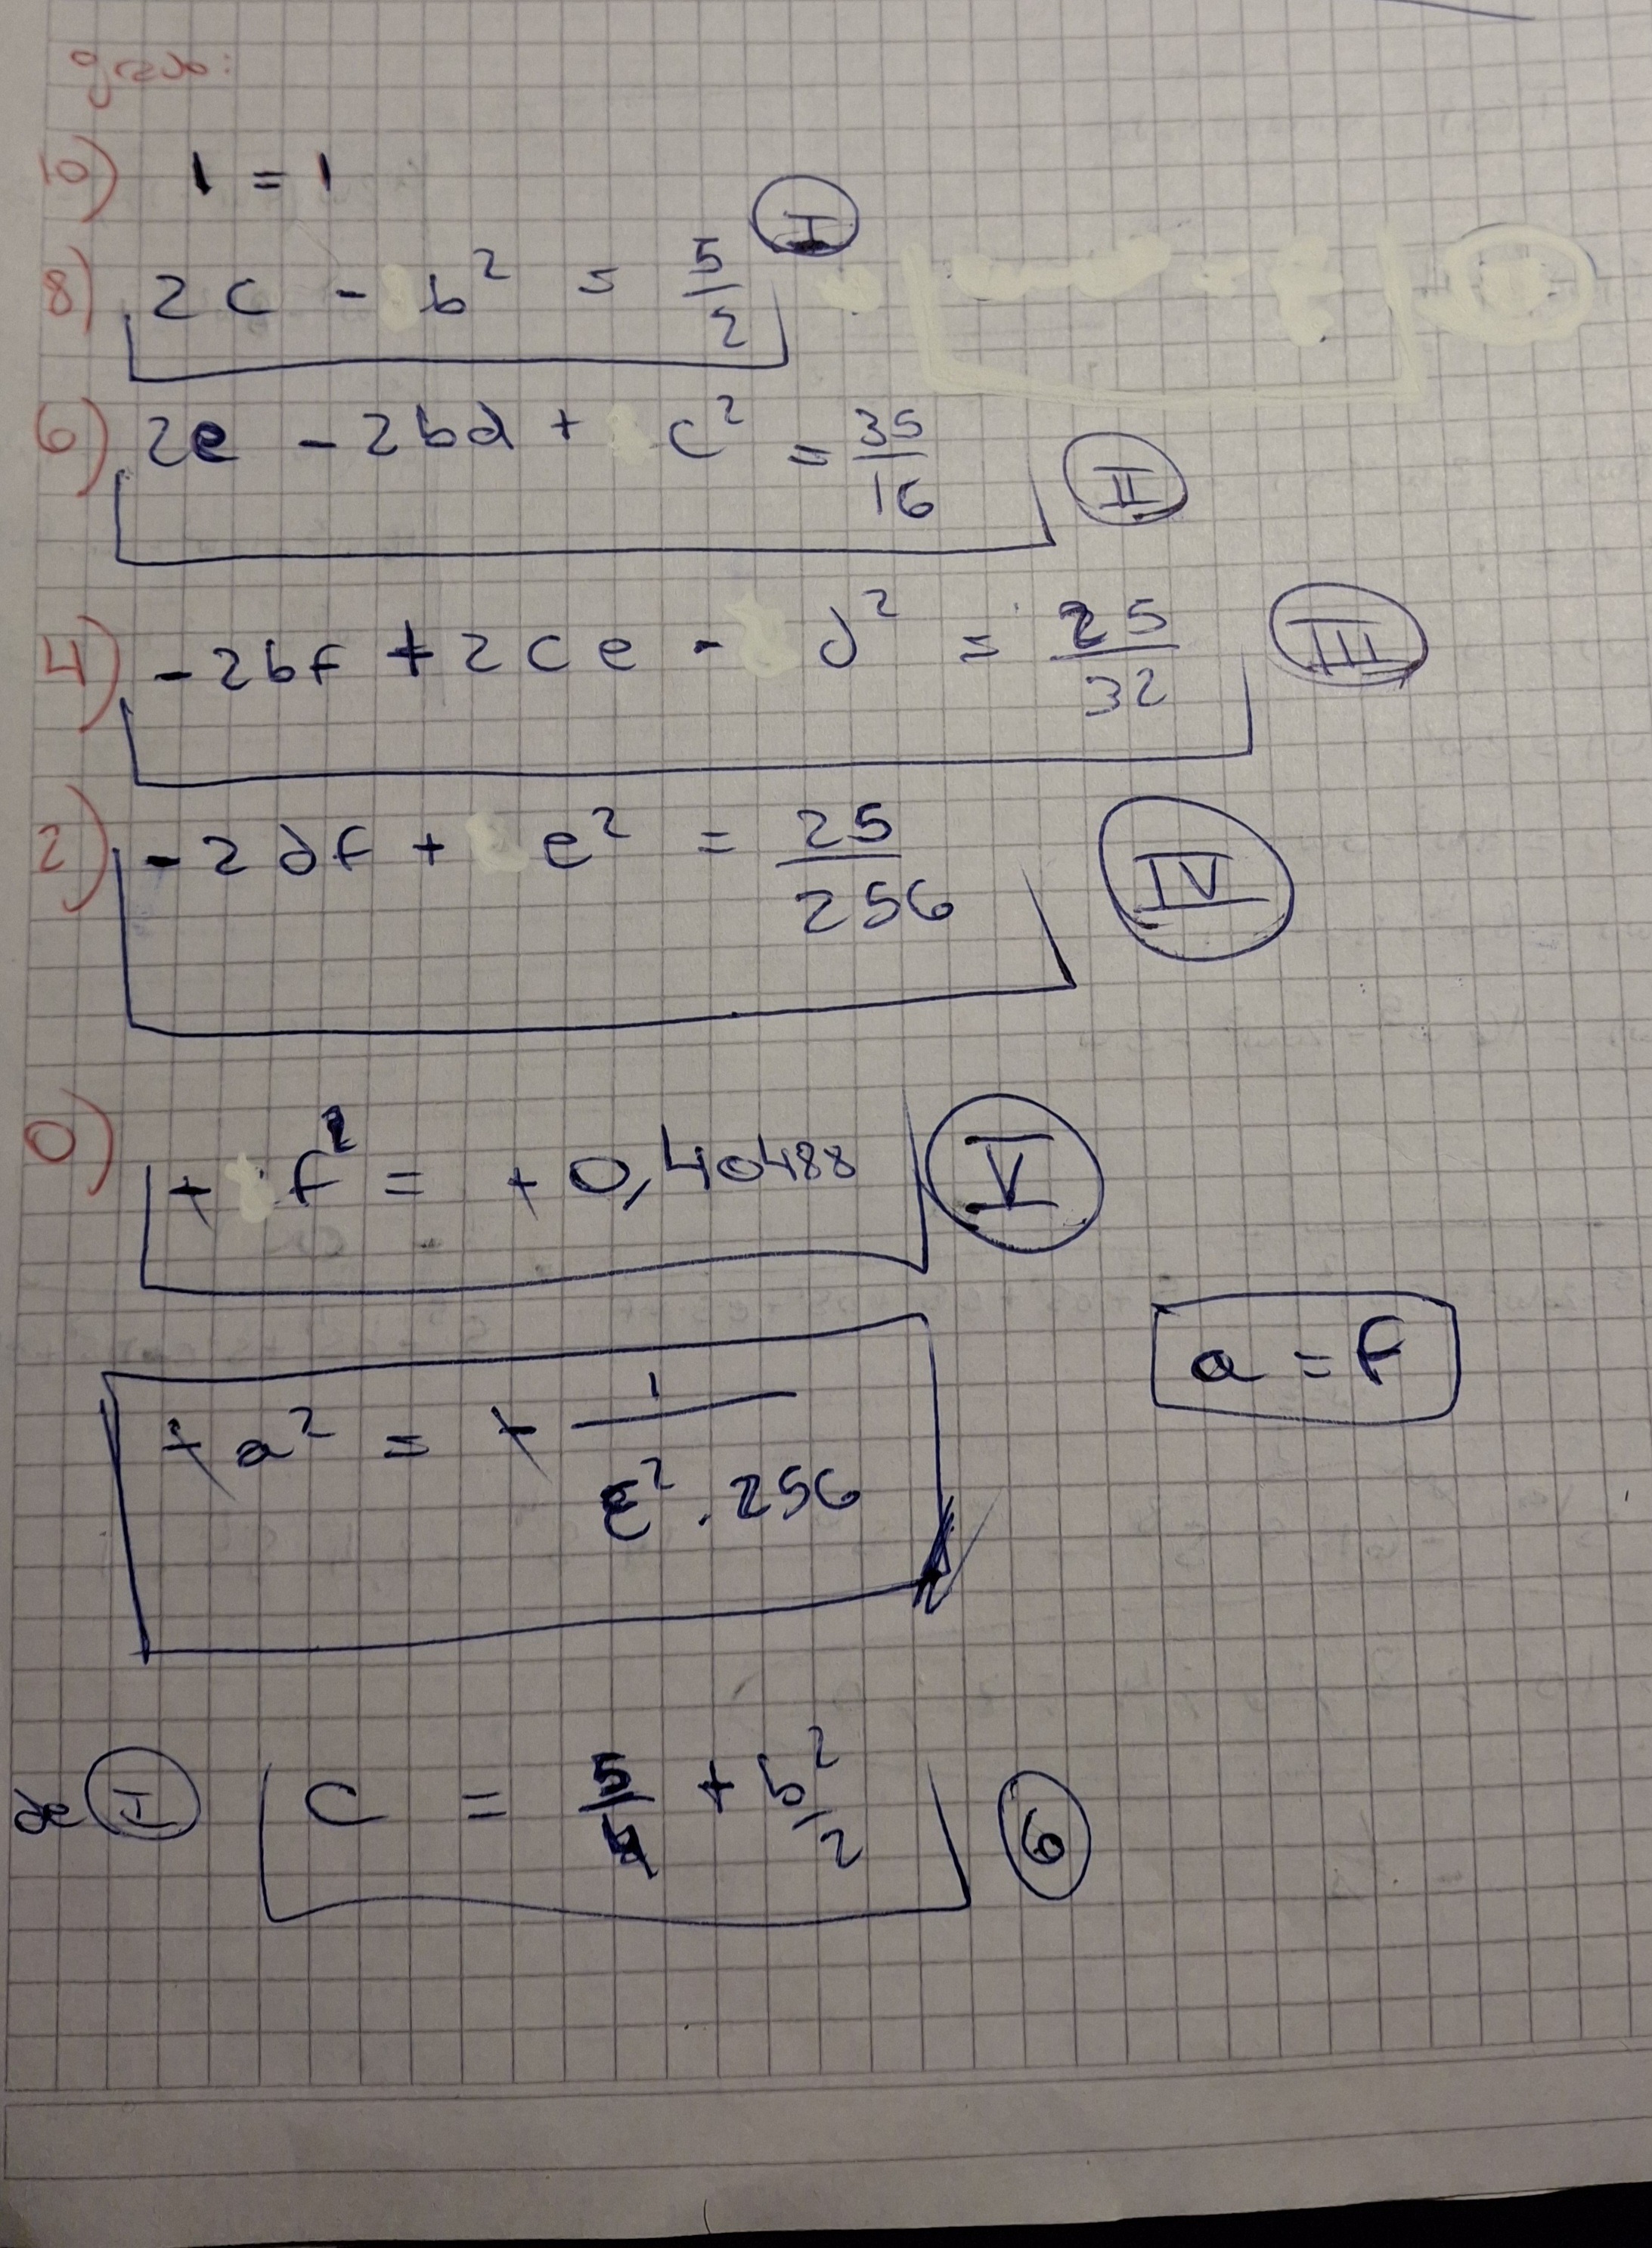 grado:
10) 1 = 1
8) 2c - b² = 5/2 I
6) 2e - 2bd + c² = 35/16 II
4) -2bf + 2ce - d² = 25/32 III
2) -2df + e² = 25/256 IV
0) + f² = + 0,40488 V
a = f
+a² = + 1/(ε² . 256)
de I c = 5/4 + b²/2 6